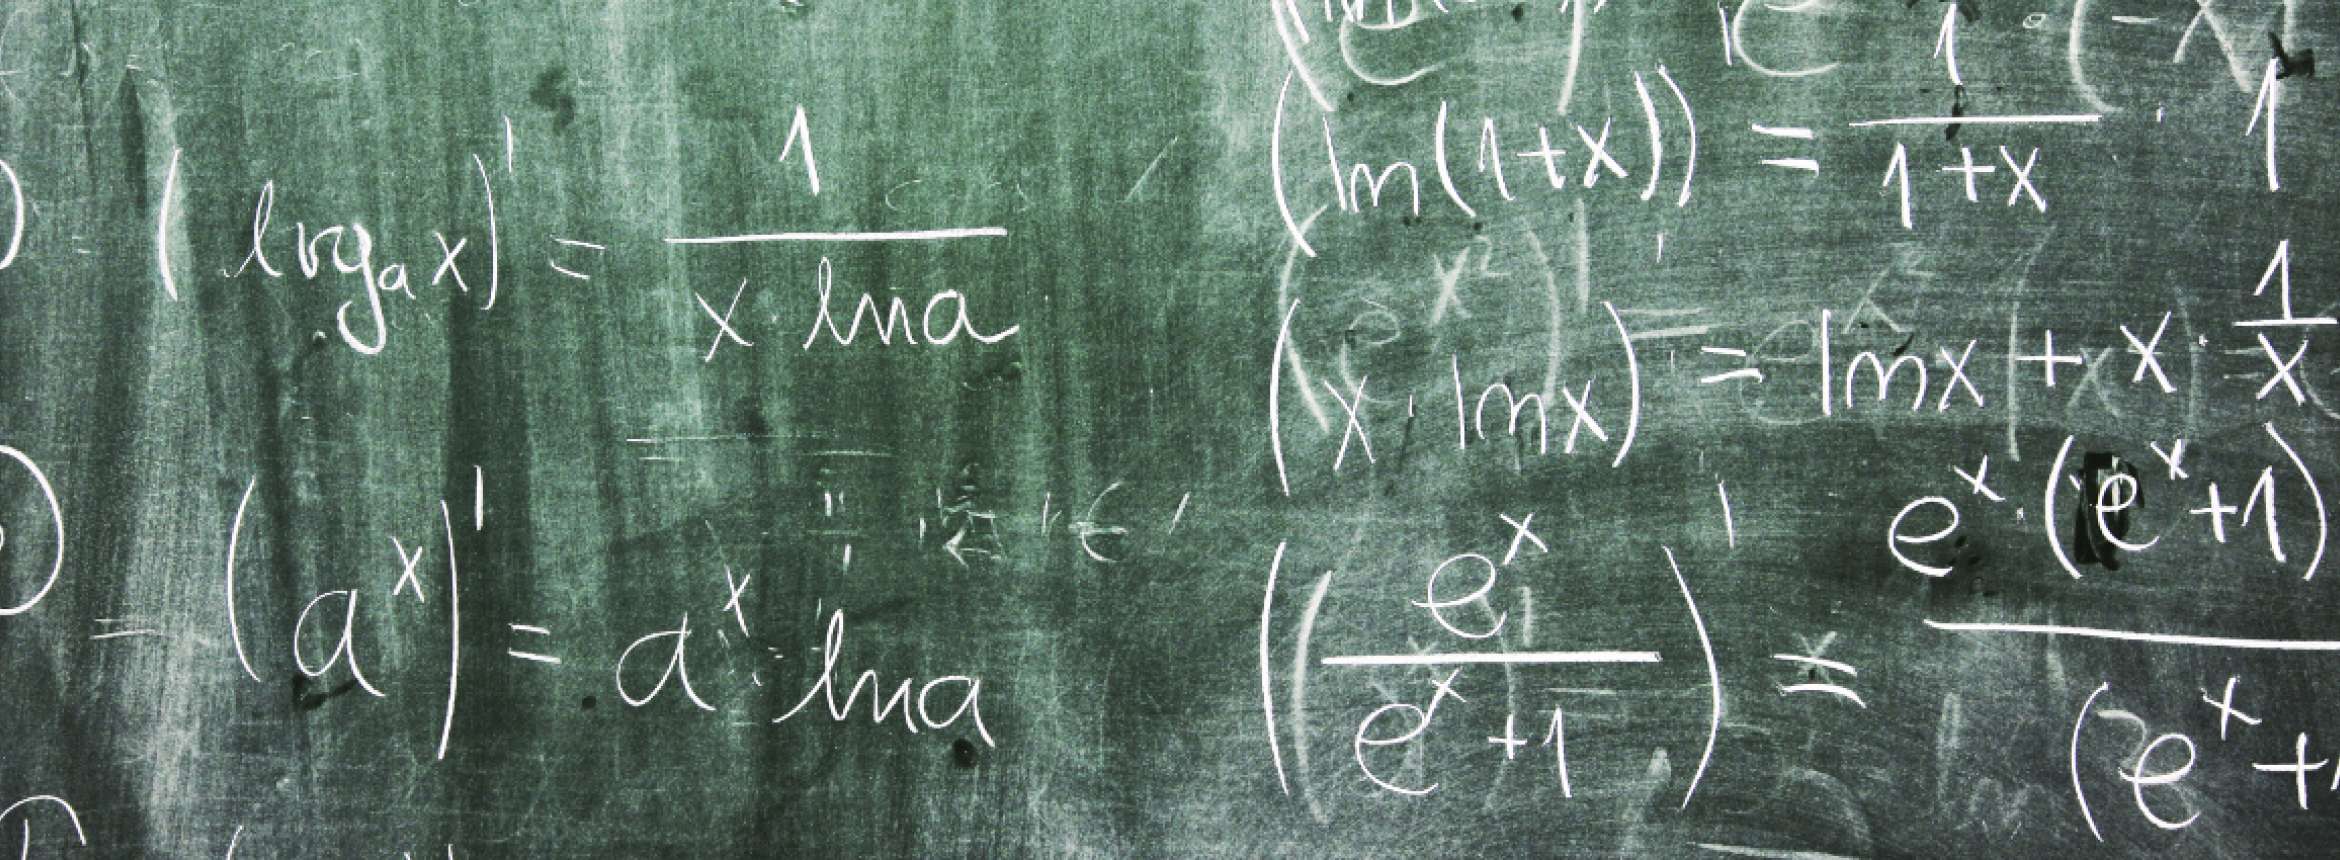 (log_a x)' = 1 / (x ln a)
(a^x)' = a^x · ln a
(ln(1+x))' = 1 / (1+x) · 1
(x · ln x)' = ln x + x · 1/x
(e^x / (e^x + 1))' = e^x · (e^x + 1) / (e^x +